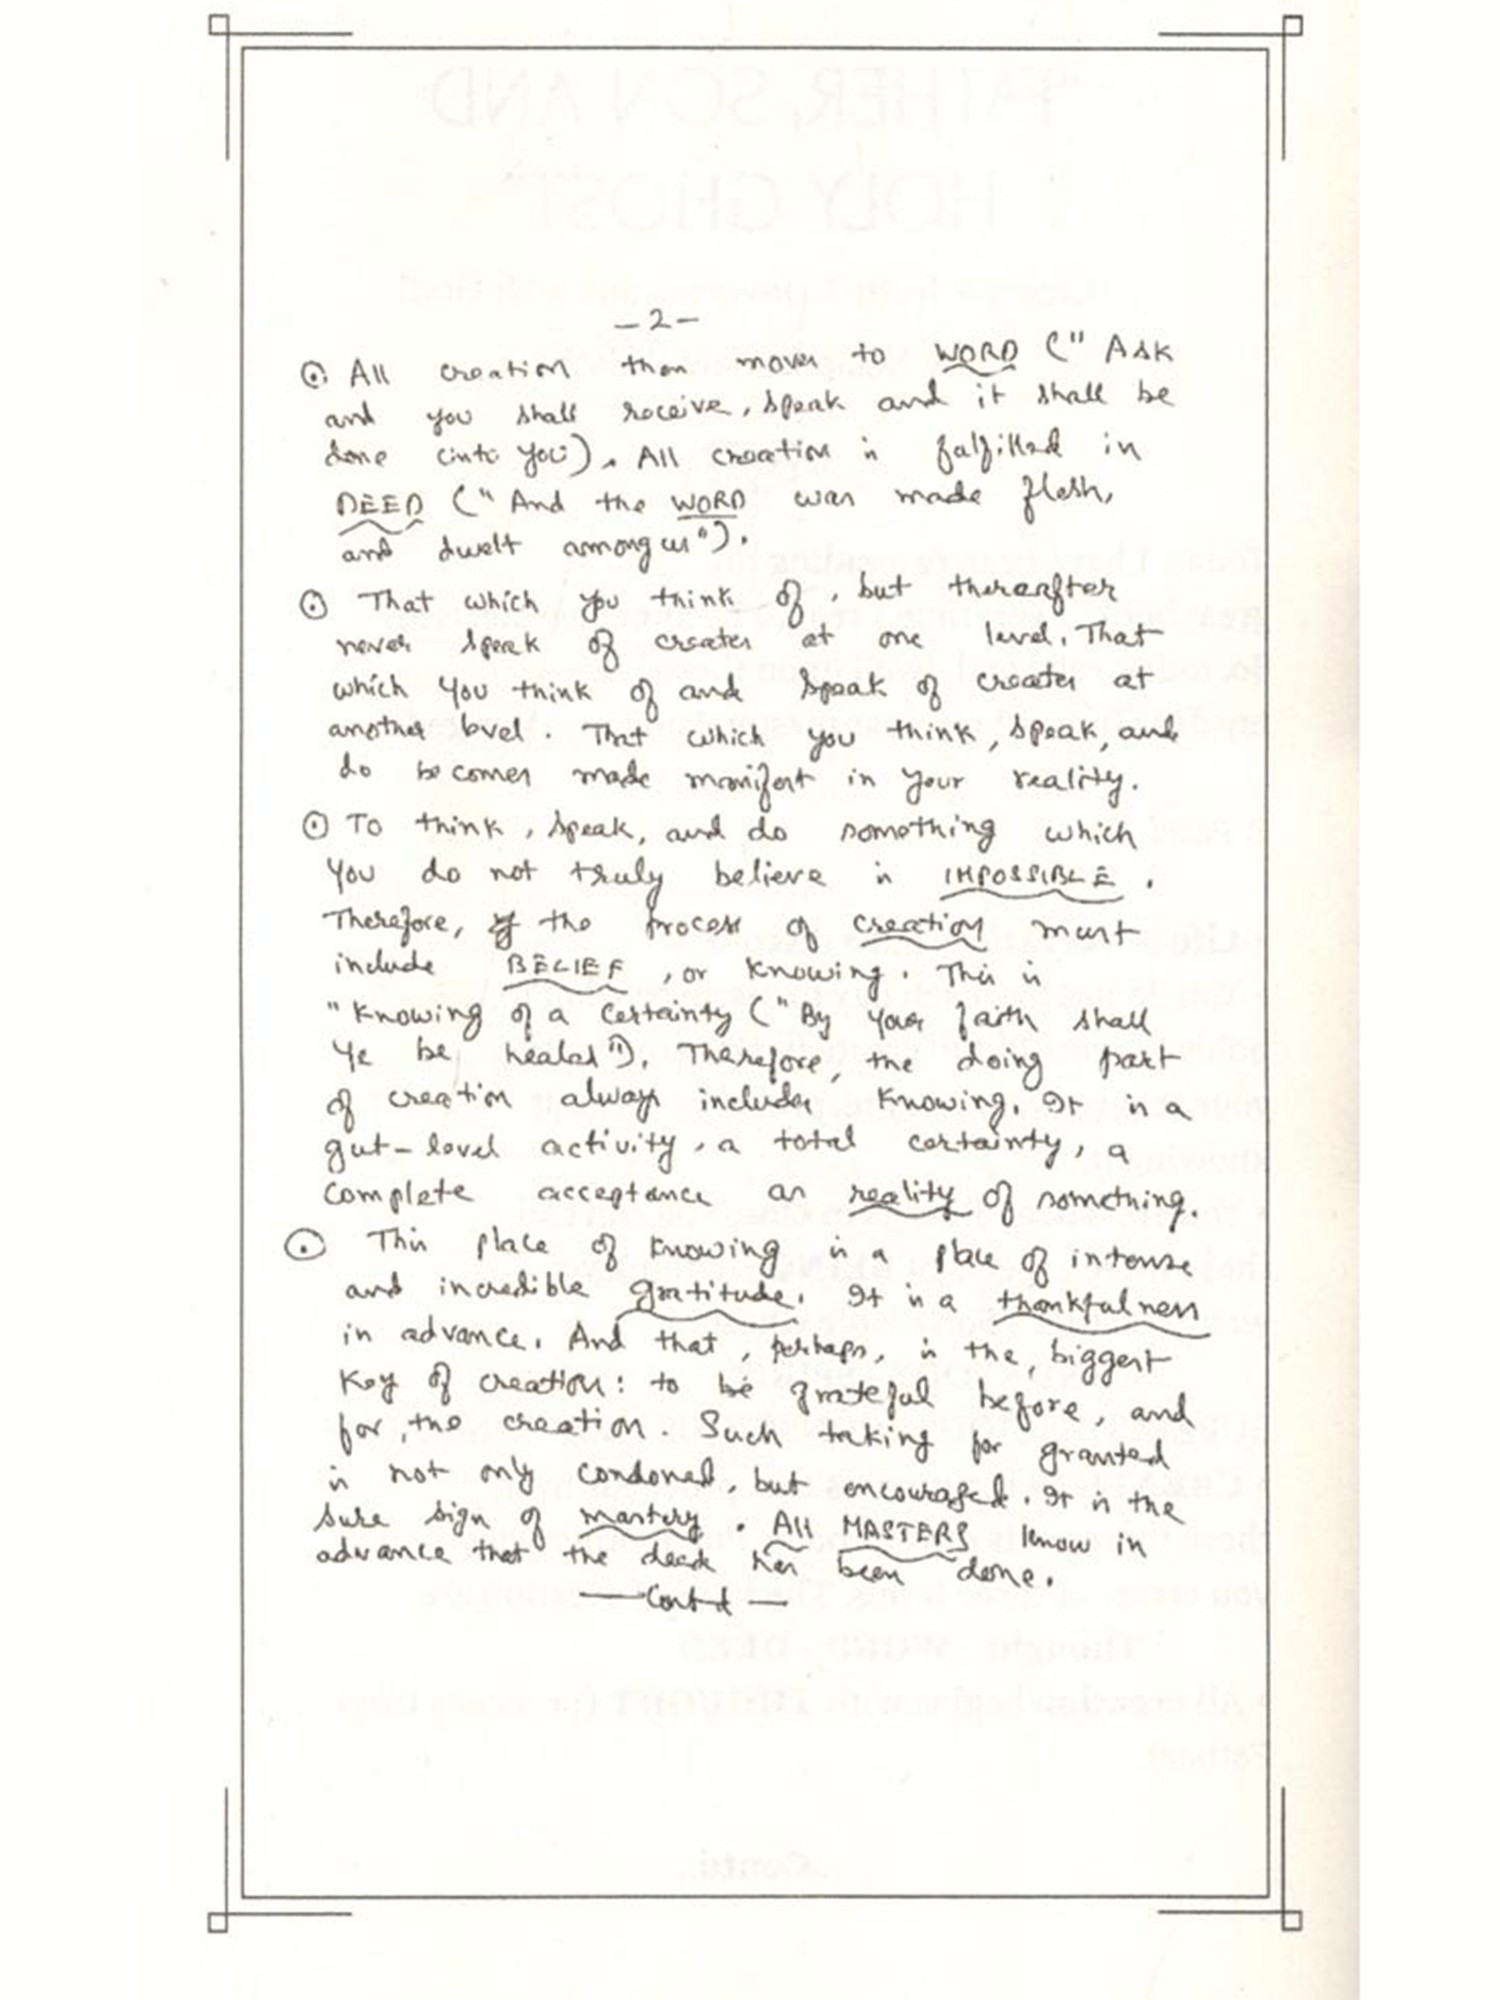 -2-
⊙ All creation then moves to WORD ("Ask
and you shall receive, speak and it shall be
done unto you). All creation is fulfilled in
DEED ("And the WORD was made flesh,
and dwelt among us").
⊙ That which you think of, but thereafter
never speak of creates at one level. That
which you think of and speak of creates at
another level. That which you think, speak, and
do becomes made manifest in your reality.
⊙ To think, speak, and do something which
you do not truly believe is IMPOSSIBLE.
Therefore, the process of creation must
include BELIEF, or knowing. This is
"knowing of a certainty ("By your faith shall
Ye be healed"). Therefore, the doing part
of creation always includes knowing. It is a
gut-level activity, a total certainty, a
complete acceptance as reality of something.
⊙ This place of knowing is a place of intense
and incredible gratitude. It is a thankfulness
in advance. And that, perhaps, is the, biggest
key of creation: to be grateful before, and
for, the creation. Such taking for granted
is not only condoned, but encouraged. It is the
sure sign of mastery. All MASTERS know in
advance that the deed has been done.
— Contd —
FATHER, SON AND
HOLY GHOST"